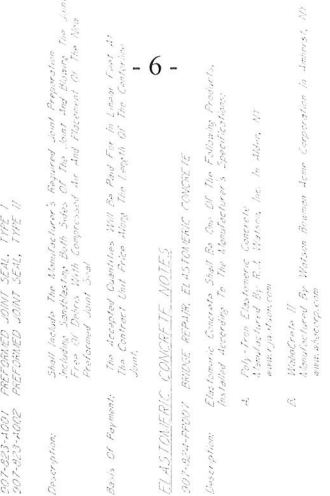 - 6 -
907-823-A001 PREFORMED JOINT SEAL, TYPE I
907-823-A002 PREFORMED JOINT SEAL, TYPE II
Description: Shall Include The Manufacturer's Required Joint Preparation
Including Sandblasting Both Sides Of The Joint And Blowing The Joint
Free Of Debris With Compressed Air And Placement Of The New
Preformed Joint Seal
Basis Of Payment: The Accepted Quantities Will Be Paid For In Linear Feet At
The Contract Unit Price Along The Length Of The Centerline
Joint.
ELASTOMERIC CONCRETE NOTES
907-824-PP007 BRIDGE REPAIR, ELASTOMERIC CONCRETE
Description: Elastomeric Concrete Shall Be One Of The Following Products,
Installed According To The Manufacturer's Specifications:
A. Poly-Tron Elastomeric Concrete
Manufactured By R.J. Watson, Inc. In Alden, NY
www.rjwatson.com
B. WaboCrete II
Manufactured By Watson Bowman Acme Corporation In Amherst, NY
www.wbacorp.com